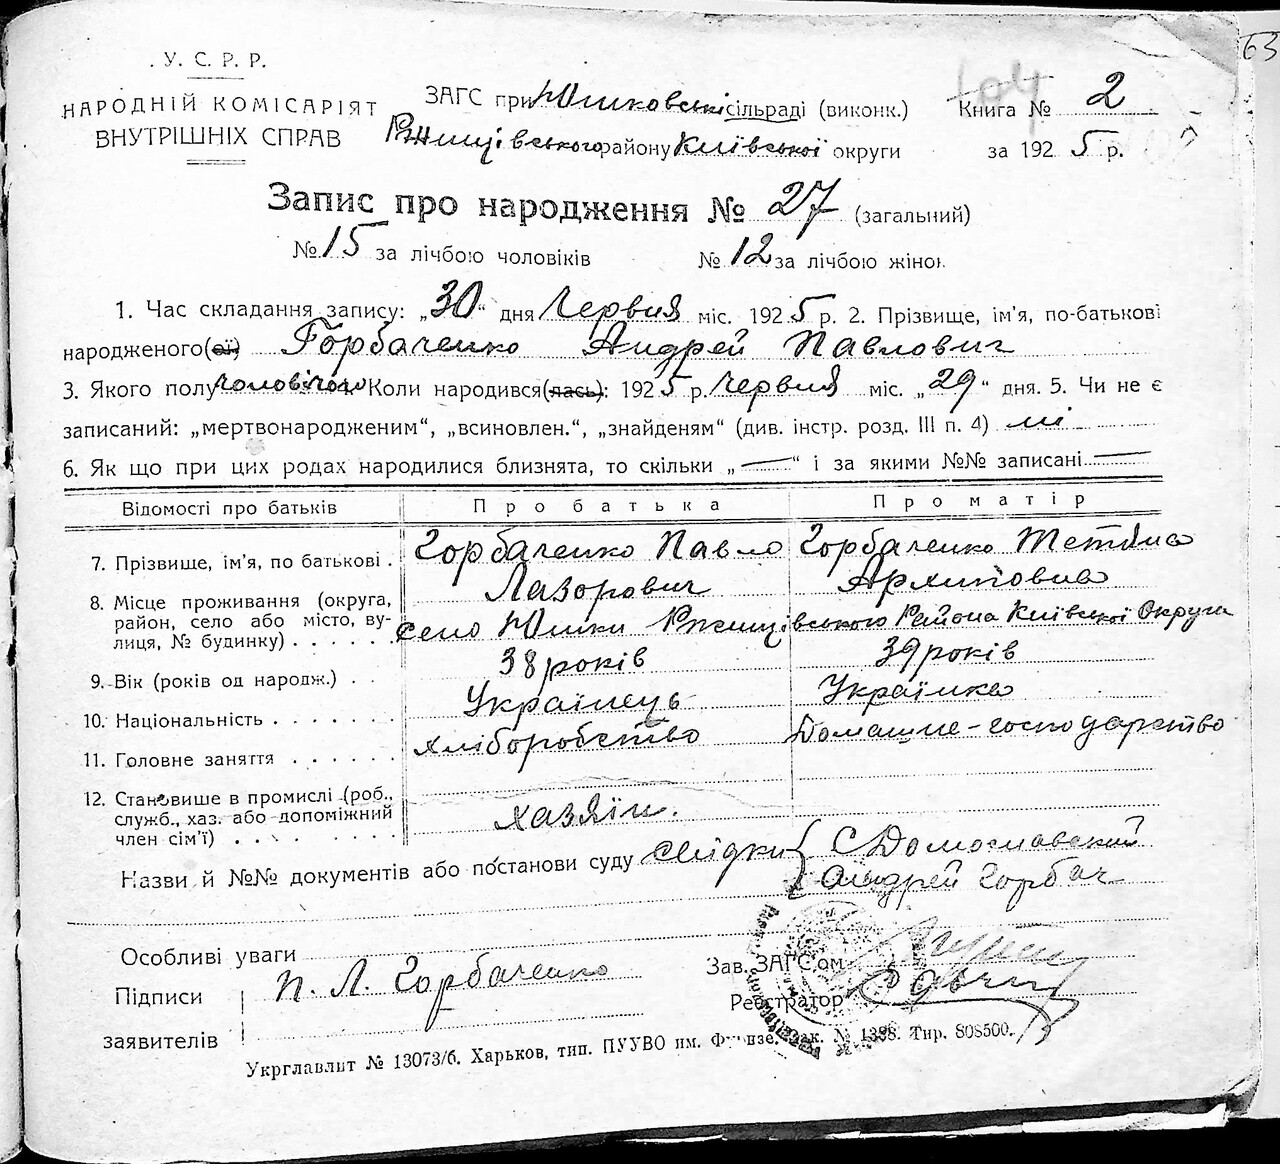 63
У. С. Р. Р.
НАРОДНІЙ КОМІСАРІЯТ
ВНУТРІШНІХ СПРАВ
ЗАГС при Юшковські сільраді (виконк.)
Ржищівського району Київської округи
104
Книга № 2
за 1925 р.
Запис про народження № 27 (загальний)
№ 15 за лічбою чоловіків № 12 за лічбою жінок
1. Час складання запису: „30“ дня Червня міс. 1925 р. 2. Прізвище, ім'я, по-батькові
народженого(ої) Горбаченко Андрей Павлович
3. Якого полу чоловічого Коли народився(лась): 1925 р. Червня міс. „29“ дня. 5. Чи не є
записаний: „мертвонародженим“, „всиновлен.“, „знайденям“ (див. інстр. розд. III п. 4) ні
6. Як що при цих родах народилися близнята, то скільки „—“ і за якими №№ записані —
Відомості про батьків Про батька Про матір
7. Прізвище, ім'я, по батькові . Горбаченко Павло Лазорович Горбаченко Тетяна Архиповна
8. Місце проживання (округа,
район, село або місто, ву-
лиця, № будинку) . . . . . село Юшки Ржищівського Района Київської Округа
9. Вік (років од народж.) . . 38 років 39 років
10. Національність . . . . . . . Українець Українка
11. Головне заняття . . . . . . хліборобство Домашне-господарство
12. Становише в промислі (роб.,
служб., хаз. або допоміжний
член сім'ї) . . . . хазяїн.
Назви й №№ документів або постанови суду свідки { С Домославский
Андрей Горбач
Особливі уваги
Підписи П. Л. Горбаченко
заявителів
Зав. ЗАГС'ом
Реєстратор
Укрглавліт № 13073/б. Харьков, тип. ПУУВО им. Фрунзе. Зак. № 1398. Тир. 808500.